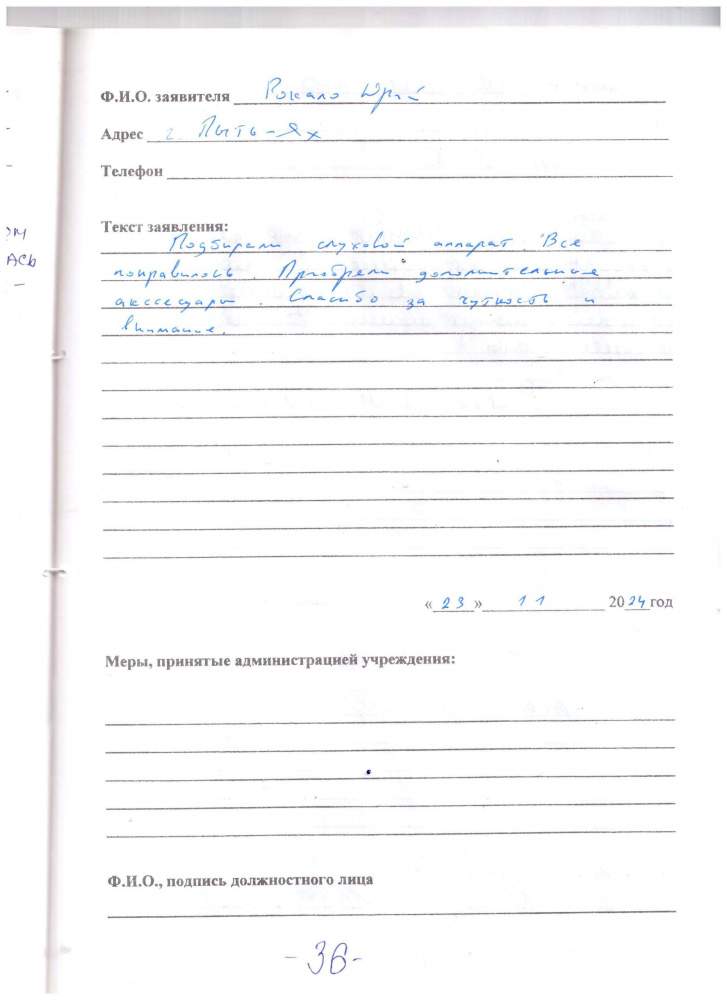 Ф.И.О. заявителя Рокало Юрий
Адрес г. Пыть-Ях
Телефон
Текст заявления:
Подбирали слуховой аппарат. Все
понравилось. Приобрели дополнительные
акссесуары. Спасибо за чуткость и
внимание.
«23» 11 2024 год
Меры, принятые администрацией учреждения:
Ф.И.О., подпись должностного лица
-36-